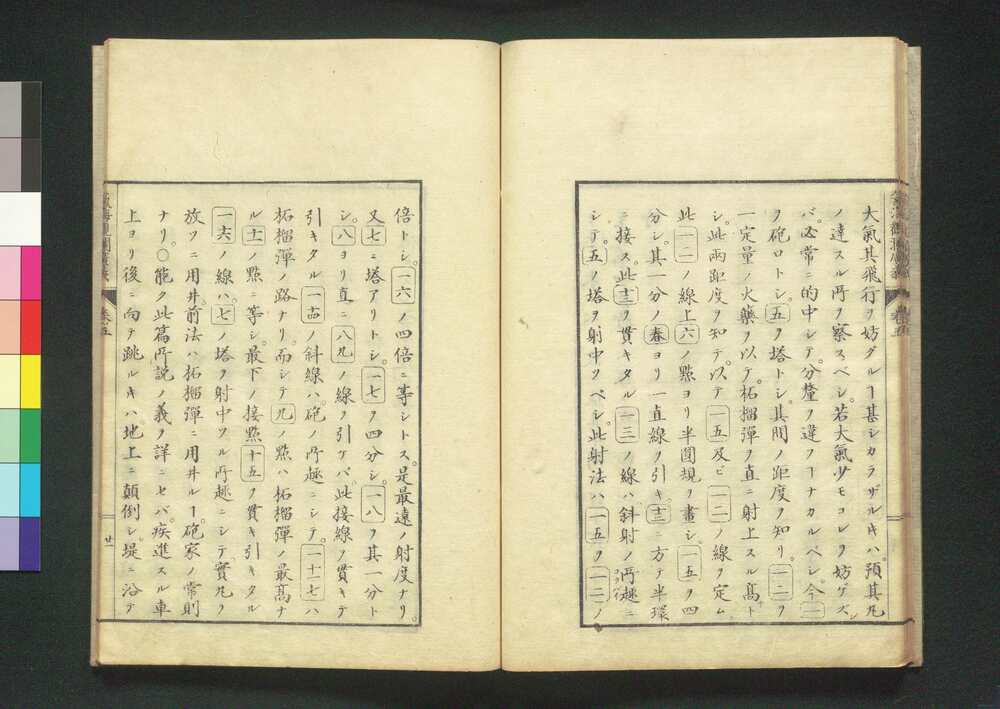 大氣其飛行ヲ妨グルヿ甚シカラザルキハ。預其丸
ノ達スル所ヲ察スベシ。若大氣少モコレヲ妨ゲズ
バ。必常ニ的中シテ。分釐ヲ違フーナカルベシ。今一
ヲ砲口トシ。五ヲ塔トシ。其間ノ距度ヲ知リ。一二ヲ
一定量ノ火藥ヲ以テ。柘榴彈ヲ直ニ射上スル髙ト
シ。此兩距度ヲ知テ。以テ一五及ビ一二ノ線ヲ定ム
此一二ノ線上六ノ點ヨリ半圓規ヲ畫シ。一五ヲ四
分シ。其一分ノ春ヨリ一直線ヲ引キ十三ニ方テ半環
ニ接ス。此十三ヲ貫キタル一三ノ線ハ斜射ノ所趣ニ
シテ。五ノ塔ヲ射中ツベシ。此射法ハ一五ヲ一二ノ
倍トシ。一六ノ四倍ニ等シトス。是最遠ノ射度ナリ。
又七ニ塔アリトシ。一七ヲ四分シ。一八ヲ其一分ト
シ。八ヨリ直ニ八九ノ線ヲ引ケバ。此接線ヲ貫キテ
引キタル一十四ノ斜線ハ。砲ノ所趣ニシテ。一十一七ハ
柘榴彈ノ路ナリ。而シテ九ノ點ハ柘榴彈ノ最髙ナ
ル十一ノ點ニ等シ。最下ノ接點十五ヲ貫キ引キタル
一十六ノ線ハ。七ノ塔ヲ射中ツル所趣ニシテ。實丸ヲ
放ツニ用井。前法ハ柘榴彈ニ用井ルー。砲家ノ常則
ナリ。〇能ク此篇所説ノ義ヲ詳ニセバ。疾進スル車
上ヨリ後ニ向テ跳ルキハ。地上ニ顛倒シ。堤ニ沿テ
卷五
廿一